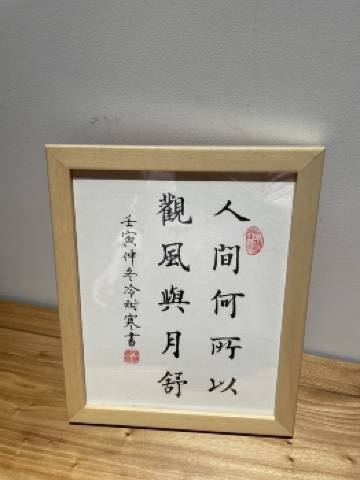 人間何所以
觀風與月舒
壬寅仲冬冷秋寒書